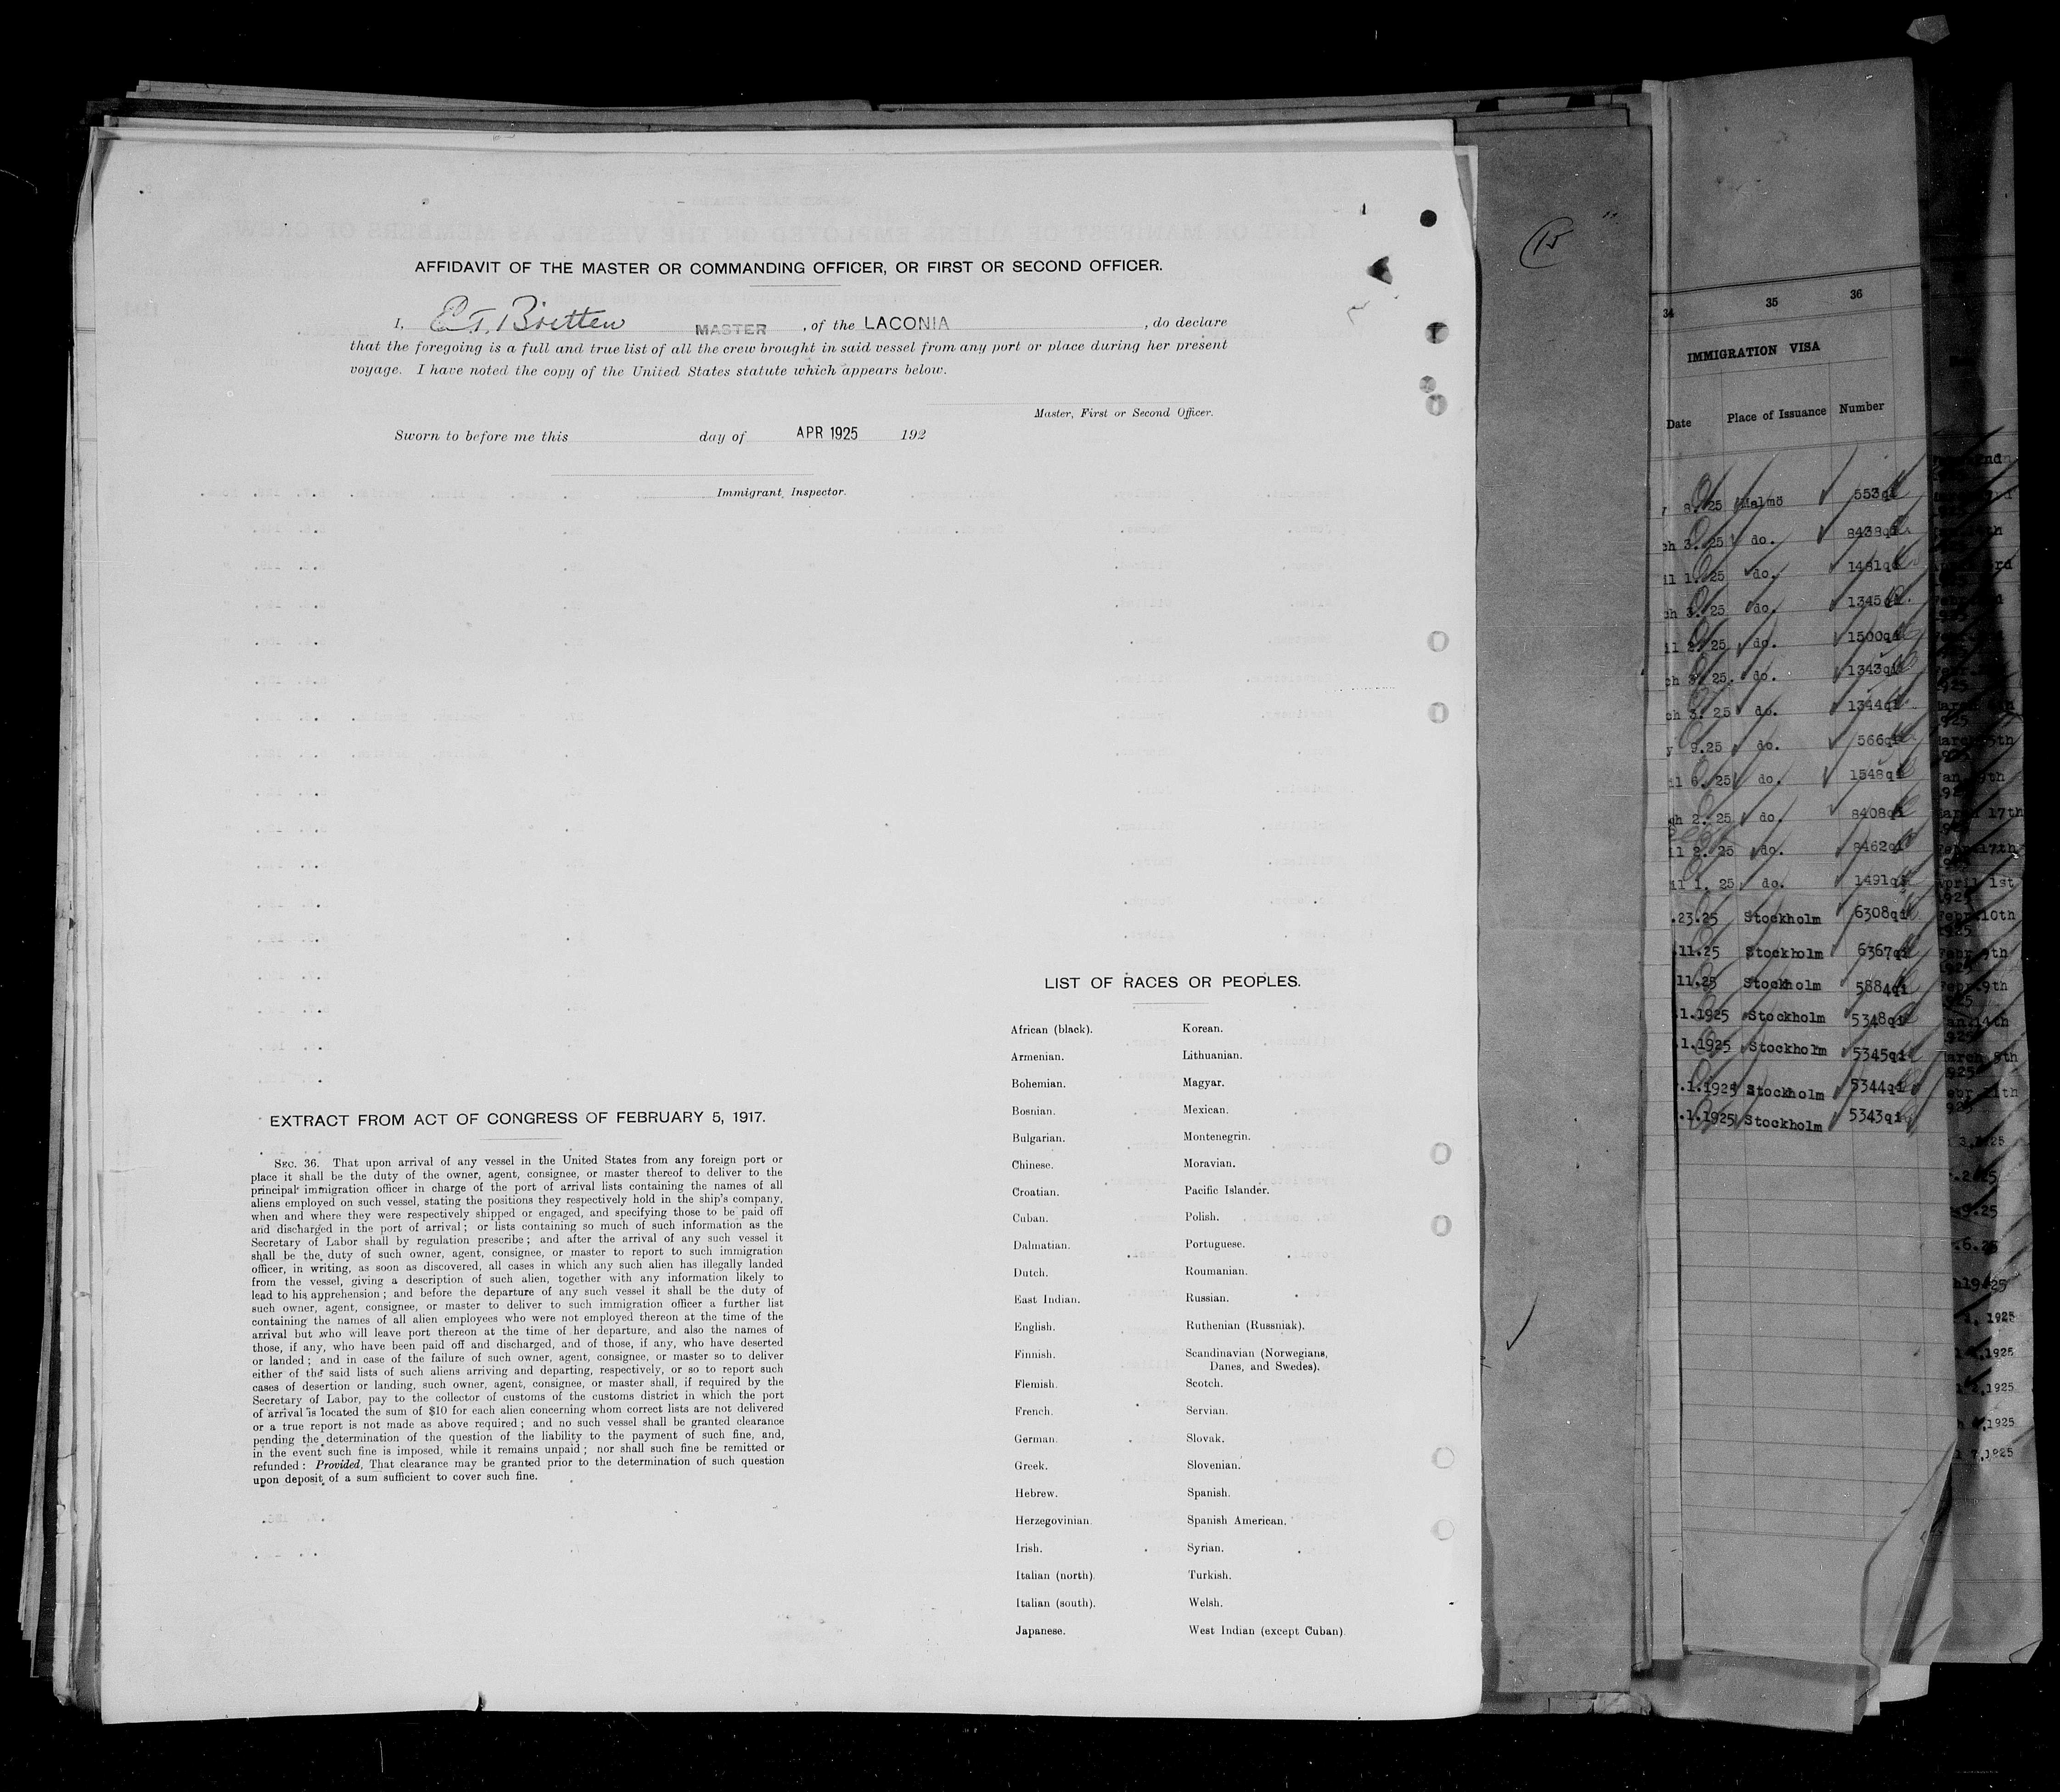 AFFIDAVIT OF THE MASTER OR COMMANDING OFFICER, OR FIRST OR SECOND OFFICER.
I, E.T. Britten MASTER , of the LACONIA , do declare
that the foregoing is a full and true list of all the crew brought in said vessel from any port or place during her present
voyage. I have noted the copy of the United States statute which appears below.
Master, First or Second Officer.
Sworn to before me this day of APR 1925 192
Immigrant Inspector.
EXTRACT FROM ACT OF CONGRESS OF FEBRUARY 5, 1917.
SEC. 36. That upon arrival of any vessel in the United States from any foreign port or
place it shall be the duty of the owner, agent, consignee, or master thereof to deliver to the
principal immigration officer in charge of the port of arrival lists containing the names of all
aliens employed on such vessel, stating the positions they respectively hold in the ship's company,
when and where they were respectively shipped or engaged, and specifying those to be paid off
and discharged in the port of arrival; or lists containing so much of such information as the
Secretary of Labor shall by regulation prescribe; and after the arrival of any such vessel it
shall be the duty of such owner, agent, consignee, or master to report to such immigration
officer, in writing, as soon as discovered, all cases in which any such alien has illegally landed
from the vessel, giving a description of such alien, together with any information likely to
lead to his apprehension; and before the departure of any such vessel it shall be the duty of
such owner, agent, consignee, or master to deliver to such immigration officer a further list
containing the names of all alien employees who were not employed thereon at the time of the
arrival but who will leave port thereon at the time of her departure, and also the names of
those, if any, who have been paid off and discharged, and of those, if any, who have deserted
or landed; and in case of the failure of such owner, agent, consignee, or master so to deliver
either of the said lists of such aliens arriving and departing, respectively, or so to report such
cases of desertion or landing, such owner, agent, consignee, or master shall, if required by the
Secretary of Labor, pay to the collector of customs of the customs district in which the port
of arrival is located the sum of $10 for each alien concerning whom correct lists are not delivered
or a true report is not made as above required; and no such vessel shall be granted clearance
pending the determination of the question of the liability to the payment of such fine, and,
in the event such fine is imposed, while it remains unpaid; nor shall such fine be remitted or
refunded: Provided, That clearance may be granted prior to the determination of such question
upon deposit of a sum sufficient to cover such fine.
LIST OF RACES OR PEOPLES.
African (black). Korean.
Armenian. Lithuanian.
Bohemian. Magyar.
Bosnian. Mexican.
Bulgarian. Montenegrin.
Chinese. Moravian.
Croatian. Pacific Islander.
Cuban. Polish.
Dalmatian. Portuguese.
Dutch. Roumanian.
East Indian. Russian.
English. Ruthenian (Russniak).
Finnish. Scandinavian (Norwegians,
Danes, and Swedes).
Flemish. Scotch.
French. Servian.
German. Slovak.
Greek. Slovenian.
Hebrew. Spanish.
Herzegovinian. Spanish American.
Irish. Syrian.
Italian (north). Turkish.
Italian (south). Welsh.
Japanese. West Indian (except Cuban).
34 35 36
IMMIGRATION VISA
Date Place of Issuance Number
8.25 Malmö 553qi
3.25 do. 8438qi
1.25 do. 1481qi
3.25 do. 1345qi
2.25 do. 1500qi
25. do. 1343qi
3.25 do. 1344qi
9.25 do. 566qi
6.25 do. 1548qi
2.25 do. 8408qi
2.25 do. 8462qi
1.25 do. 1491qi
.23.25 Stockholm 6308qi
.11.25 Stockholm 6367qi
11.25 Stockholm 5884qi
.1.1925 Stockholm 5348qi
.1.1925 Stockholm 5345qi
.1.1925 Stockholm 5344qi
.1.1925 Stockholm 5343qi